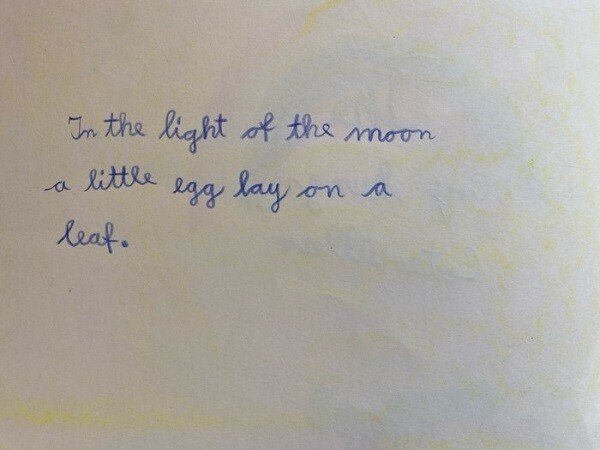 In the light of the moon
a little egg lay on a
leaf.